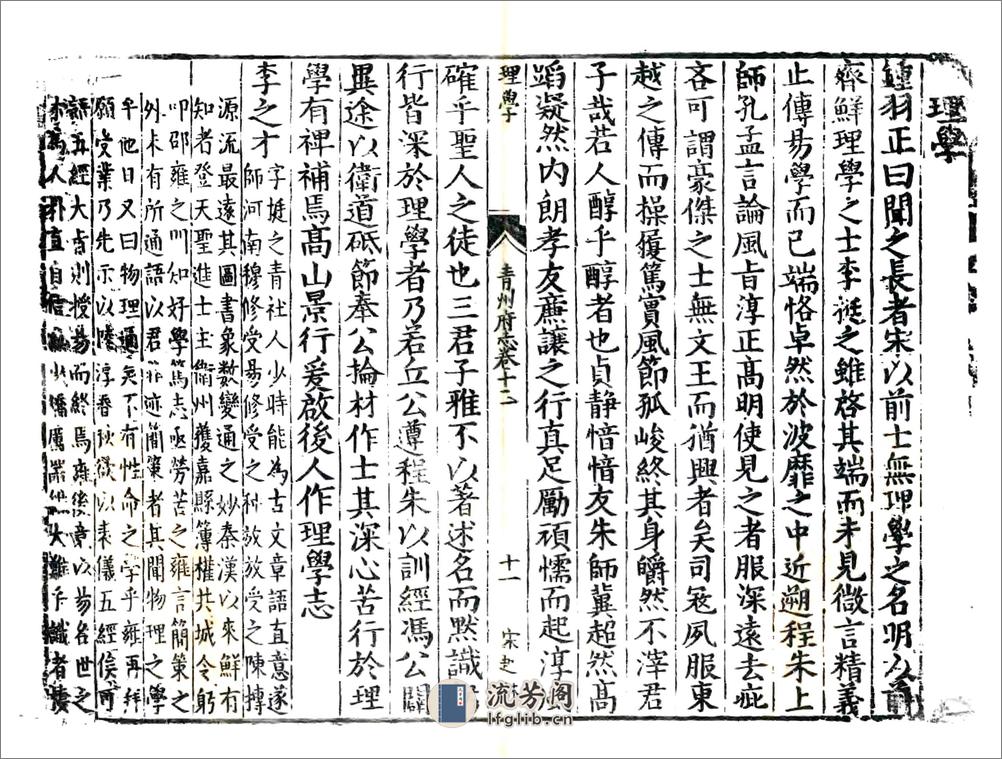 理學
鍾羽正曰聞之長者宋以前士無理學之名明以前
齊鮮理學之士李挺之雖啓其端而未見微言精義
止傳易學而已端恪卓然於波靡之中近遡程朱上
師孔孟言論風旨淳正高明使見之者服深遠去疵
吝可謂豪傑之士無文王而猶興者矣司寇夙服東
越之傳而操履篤實風節孤峻終其身皭然不滓君
子哉若人醇乎醇者也貞靜愔愔友朱師冀超然高
蹈凝然内朗孝友廉讓之行真足勵頑懦而起淳
理學
青州府志卷十二
十一
確乎聖人之徒也三君子雅不以著述名而黙識
行皆深於理學者乃若丘公遵程朱以訓經馮公闢
異途以衛道砥節奉公掄材作士其深心苦行於理
學有裨補焉高山景行爰啟後人作理學志
李之才
字挺之青社人少時能為古文章語直意遂
師河南穆修受易修受之种放放受之陳摶
源流最遠其圖書象數變通之妙秦漢以來鮮有
知者登天聖進士主衛州獲嘉縣簿權共城令躬
叩邵雍之門知好學篤志亟勞苦之雍言簡策之
外未有所通語以君非迹簡策者其聞物理之學
乎他日又曰物理通矣不有性命之學乎雍再拜
願受業乃先示以陸淳春秋欲以表儀五經俟可
語五經大旨則授易而終焉雍後竟以易名世之
才為人朴直自信無少矯厲
流芳阁
lfglib.cn